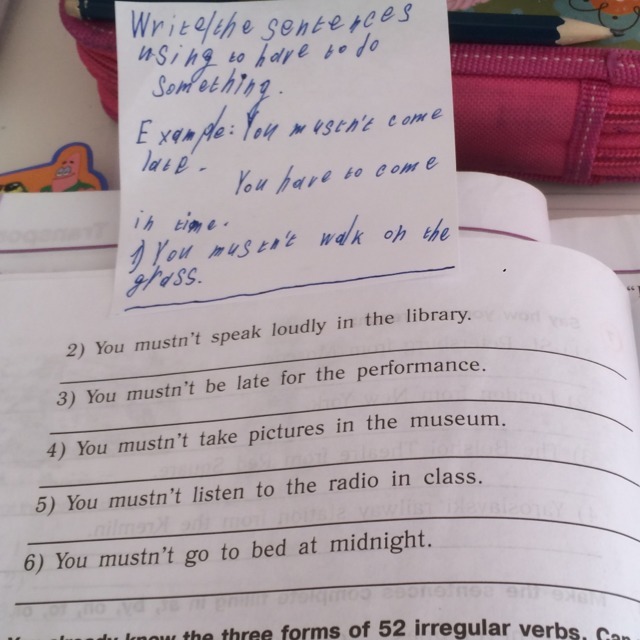 Write the sentences
using to have to do
something.
Example: You mustn't come
late.
You have to come
in time.
1) You mustn't walk on the
grass.
2) You mustn't speak loudly in the library.
3) You mustn't be late for the performance.
4) You mustn't take pictures in the museum.
5) You mustn't listen to the radio in class.
6) You mustn't go to bed at midnight.
already know the three forms of 52 irregular verbs.